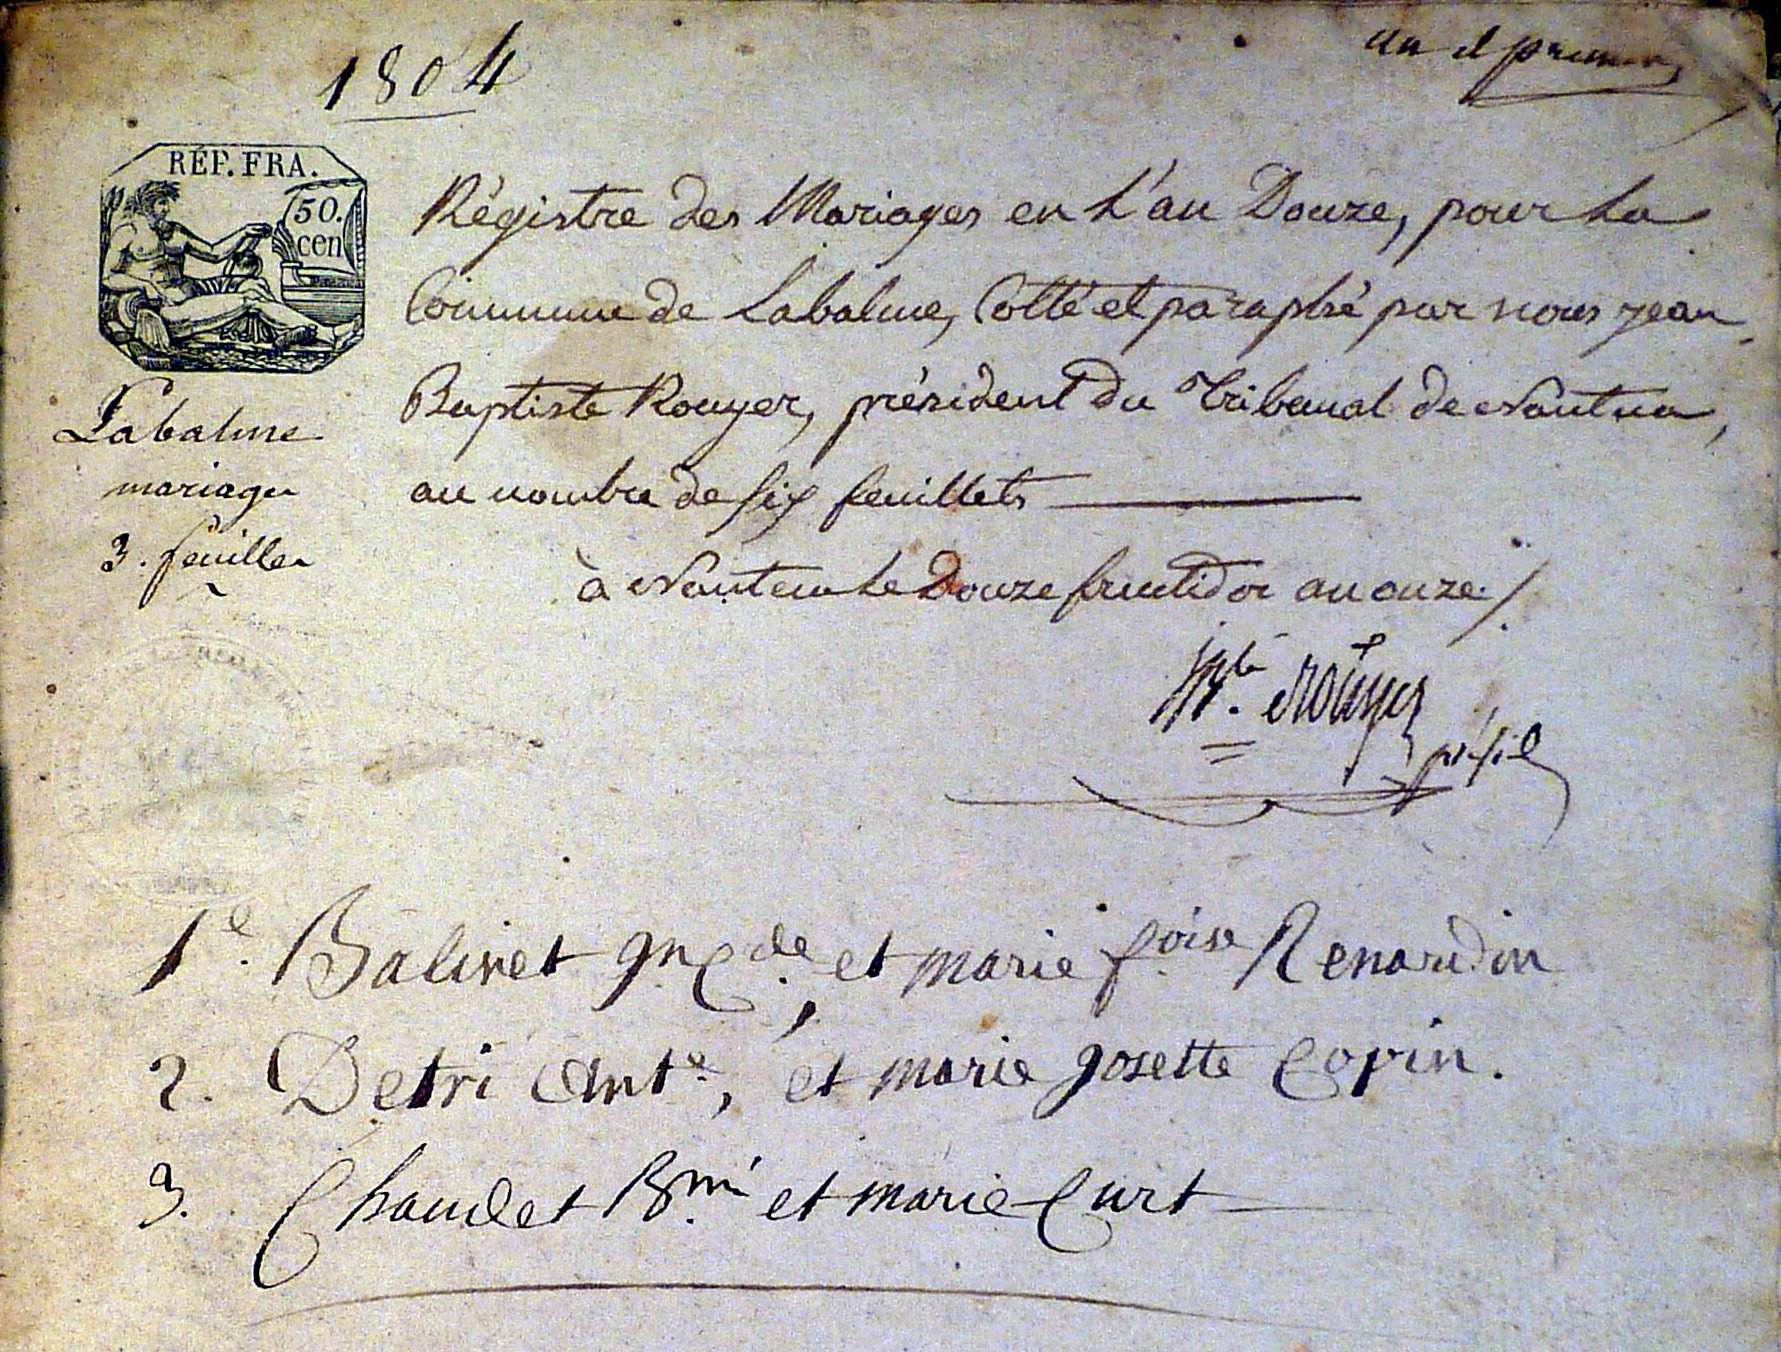 1804
un et premier
RÉP. FRA.
50.
cen
Régistre des Mariages en L'an Douze, pour La
Commune de Labalme, Cotté et paraphé par nous jean
Baptiste Rouyer, président du Tribunal de Nantua,
au nombre de six feuillets
à Nantua Le Douze fructidor an onze./.
Labalme
mariages
3. feuilles
Rouyer
présid
1e. Balivet Jn Cde. et marie foise Renardin
2. Detri Ante, et marie Josette Copin.
3. Chaudet Bmi et marie Curt